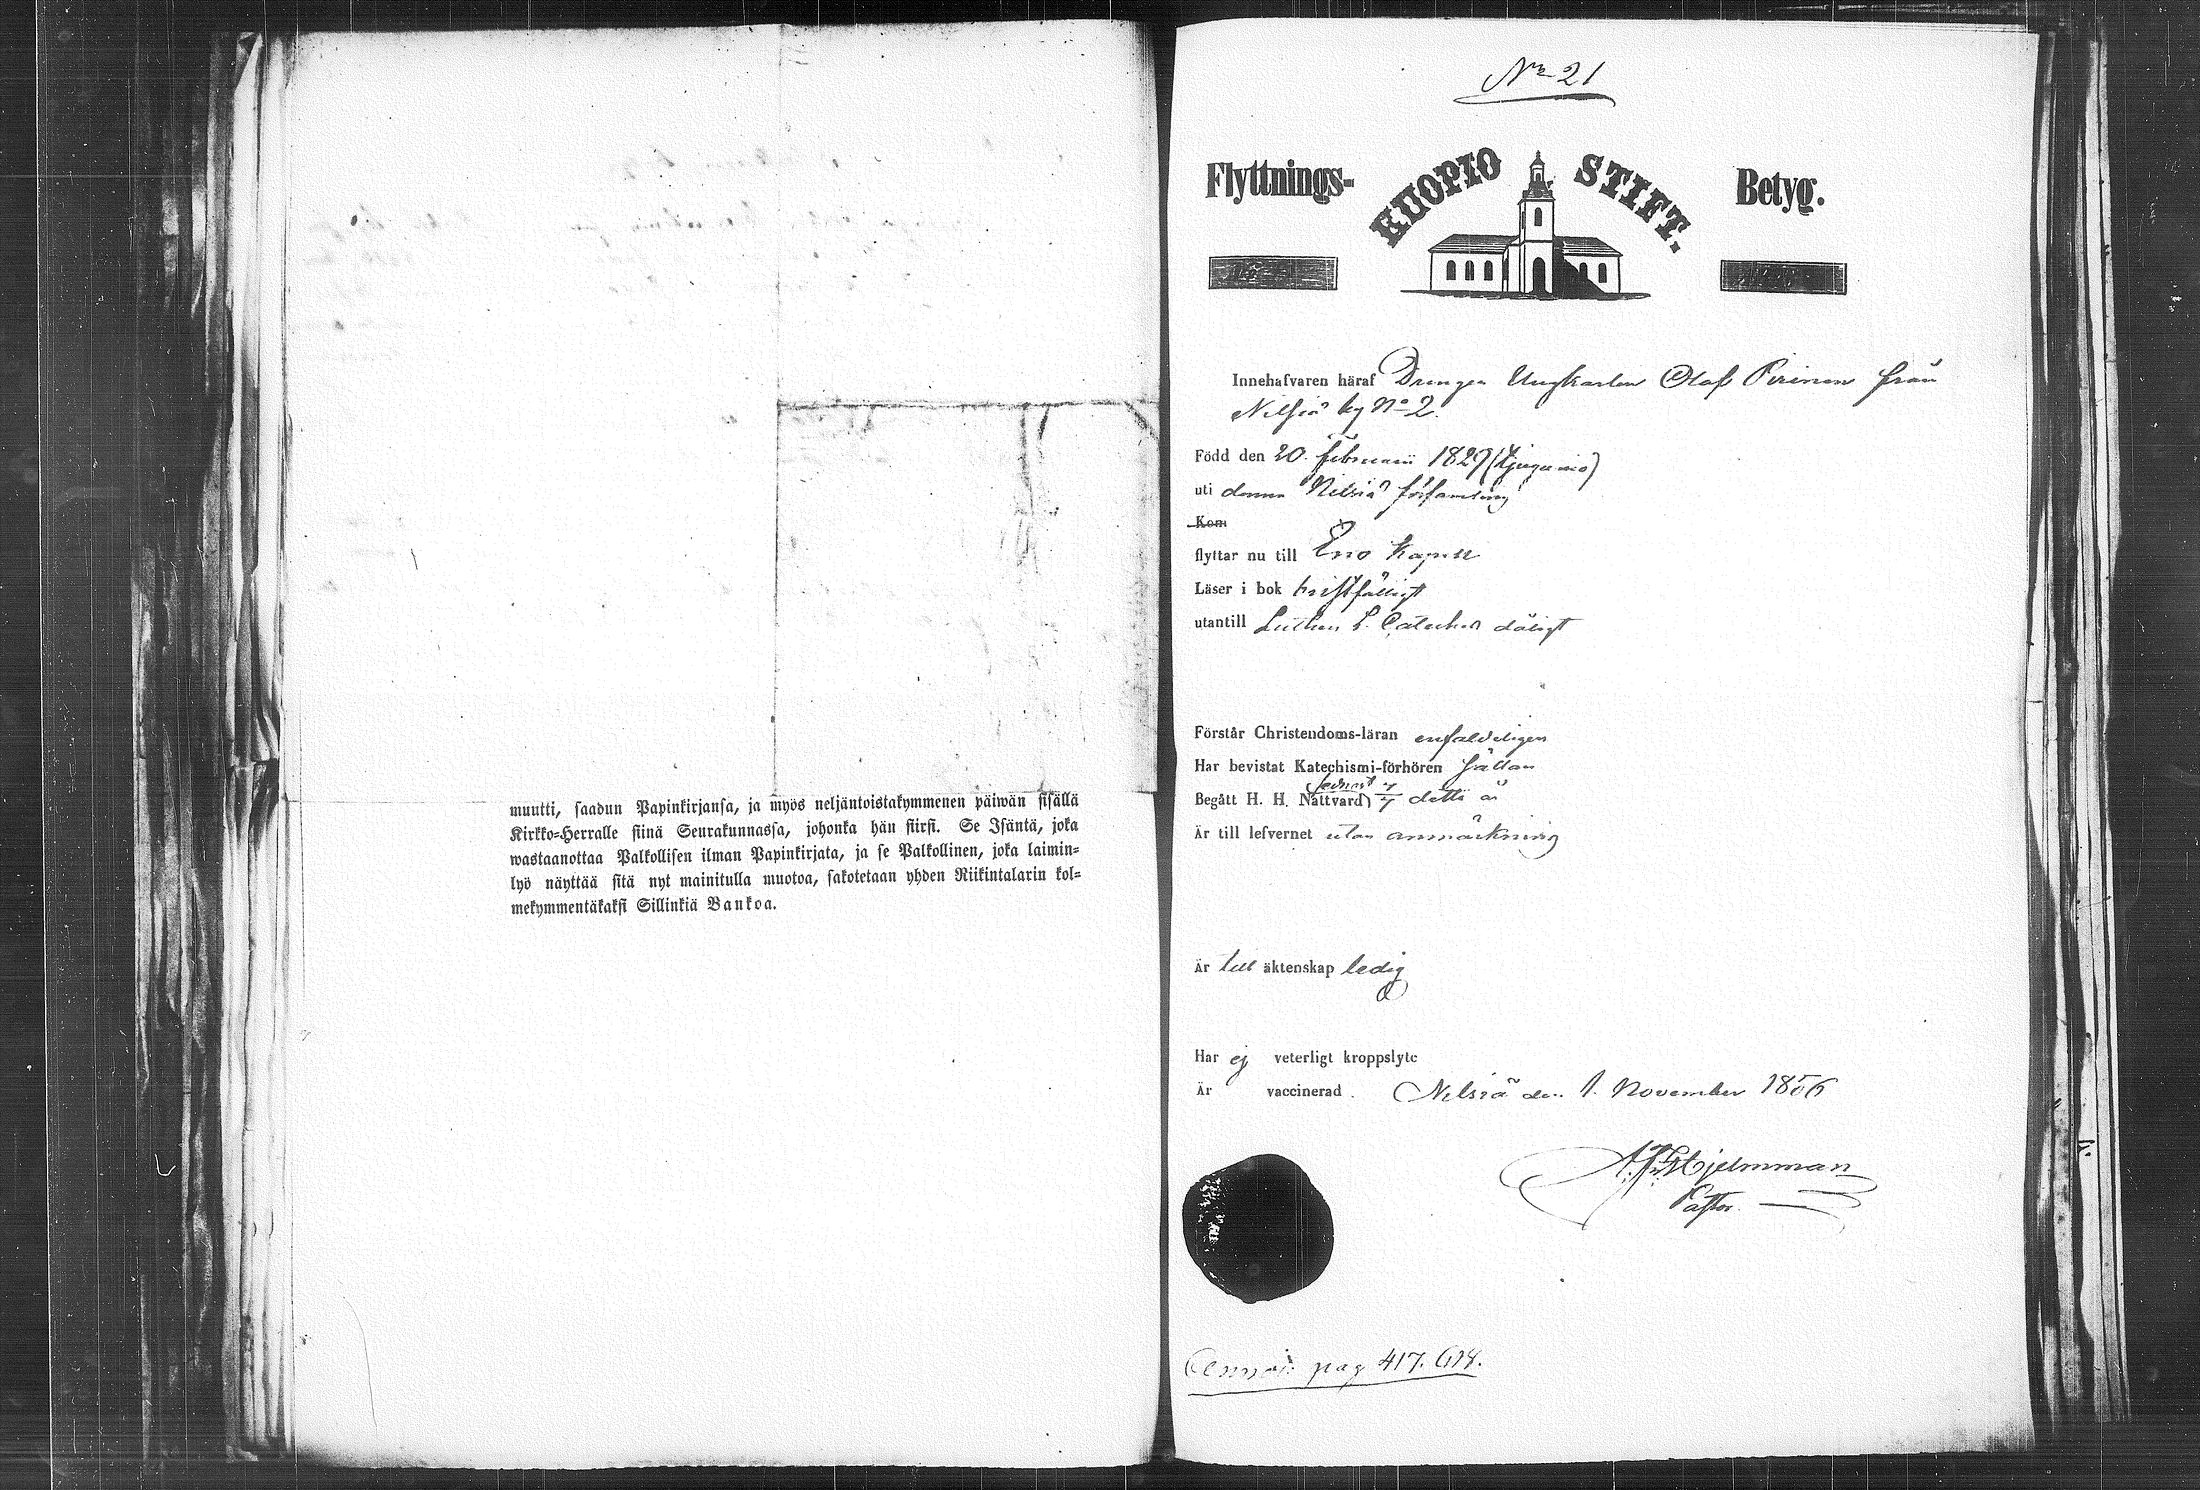 muutti, saadun Papinkirjansa, ja myös neljäntoistakymmenen päiwän sisällä
Kirkko-Herralle siinä Seurakunnassa, johonka hän siirsi. Se Isäntä, joka
wastaanottaa Palkollisen ilman Papinkirjata, ja se Palkollinen, joka laimin-
lyö näyttää sitä nyt mainitulla muotoa, sakotetaan yhden Riikintalarin kol-
mekymmentäkaksi Sillinkiä Bankoa.
No 21
Flyttnings- KUOPIO STIFT. Betyg.
Innehafvaren häraf Drengen Ungkarlen Olaf Pirinen från
Nilsiä by No 2.
Född den 20 februarii 1827 (tjugusju)
uti denna Nilsiä församling
Kom
flyttar nu till Eno Kapell
Läser i bok bristfälligt
utantill Luthers L. Cateches dåligt
Förstår Christendoms-läran enfaldeligen
Har bevistat Katechismi-förhören sällan
sednast
Begått H. H. Nattvard detta år
Är till lefvernet utan anmärkning
Är till äktenskap ledig
Har ej veterligt kroppslyte
Är vaccinerad. Nilsiä den 1. November 1856
Hjelmman
Pastor.
pag 417.